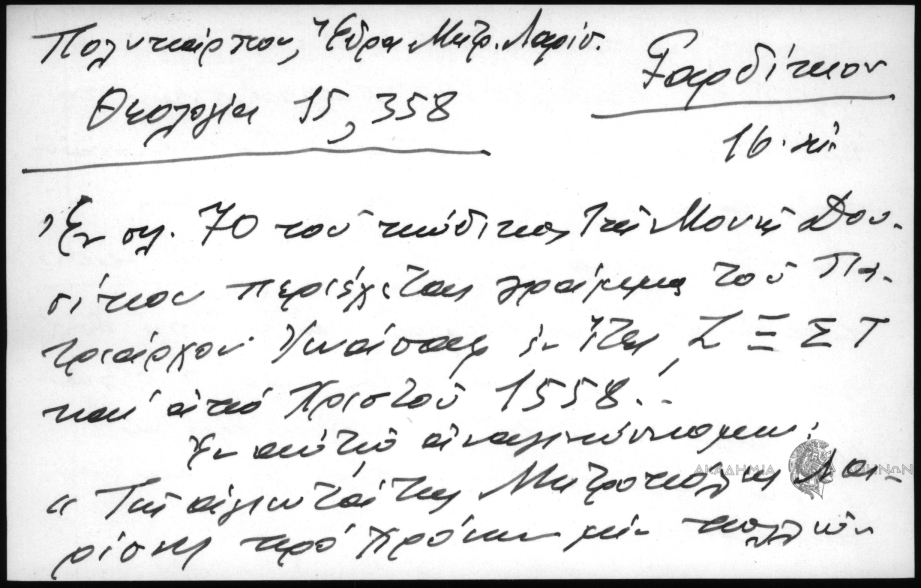 Πολυκάρπου, Ἕδρα Μητρ. Λαρίσ.
Φαρδίτκου
Θεολογία 15, 358
16. αἰ.
Ἐν σελ. 70 τοῦ κώδικος τῆς Μονῆς Δου-
σίκου περιέχεται γράμμα τοῦ Πα-
τριάρχου Ἰωάσαφ ἐν ἔτει ΖΞΣΤ
καὶ ἀπὸ Χριστοῦ 1558..
Ἐν αὐτῷ ἀναγινώσκομεν:
« Τῆς ἁγιωτάτης Μητροπόλεως Λα-
ρίσης πρὸ χρόνων μὲν πολλῶν
ΑΚΑΔΗΜΙΑ ΑΘΗΝΩΝ